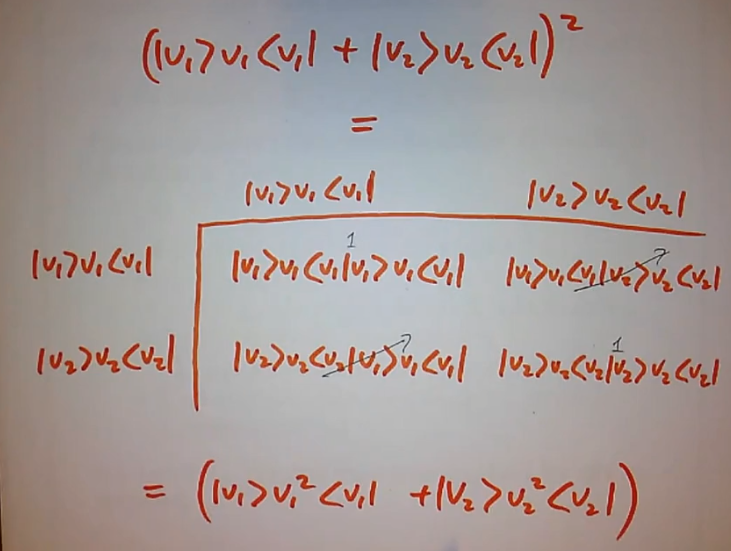 (|v₁>v₁<v₁| + |v₂>v₂<v₂|)²
=
|v₁>v₁<v₁| |v₂>v₂<v₂|
1
|v₁>v₁<v₁| |v₁>v₁<v₁|v₁>v₁<v₁| |v₁>v₁<v₁|v₂>v₂<v₂|
1
|v₂>v₂<v₂| |v₂>v₂<v₂|v₁>v₁<v₁| |v₂>v₂<v₂|v₂>v₂<v₂|
= (|v₁>v₁²<v₁| +|v₂>v₂²<v₂|)